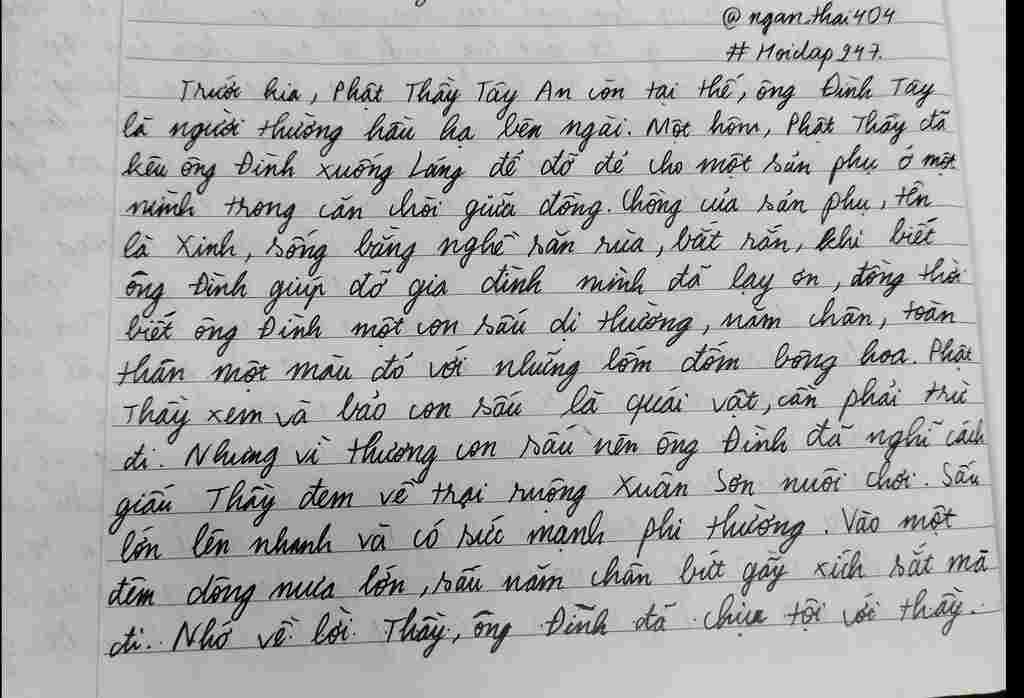 @ngan.thai404
# Hoidap247.
Trước kia, Phật Thầy Tây An còn tại thế, ông Đình Tây
là người thường hầu hạ bên ngài. Một hôm, Phật Thầy đã
kêu ông Đình xuống Láng để đỡ đẻ cho một sản phụ ở một
mình trong căn chòi giữa đồng. Chồng của sản phụ, tên
là Xinh, sống bằng nghề săn rùa, bắt rắn, khi biết
ông Đình giúp đỡ gia đình mình đã lạy ơn, đồng thời
biết ông Đình một con sấu dị thường, năm chân, toàn
thân một màu đỏ với những lốm đốm bông hoa. Phật
Thầy xem và bảo con sấu là quái vật, cần phải trừ
đi. Nhưng vì thương con sấu nên ông Đình đã nghĩ cách
giấu Thầy đem về trại ruộng Xuân Sơn nuôi chơi. Sấu
lớn lên nhanh và có sức mạnh phi thường. Vào một
đêm dông mưa lớn, sấu năm chân bứt gãy xích sắt mà
đi. Nhớ về lời Thầy, ông Đình đã chịu tội với thầy.